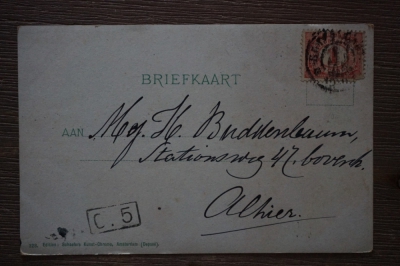 BRIEFKAART
AAN Mej. H. Buddenbaum,
Stationsweg 47. bovenh.
Alhier.
C. 5